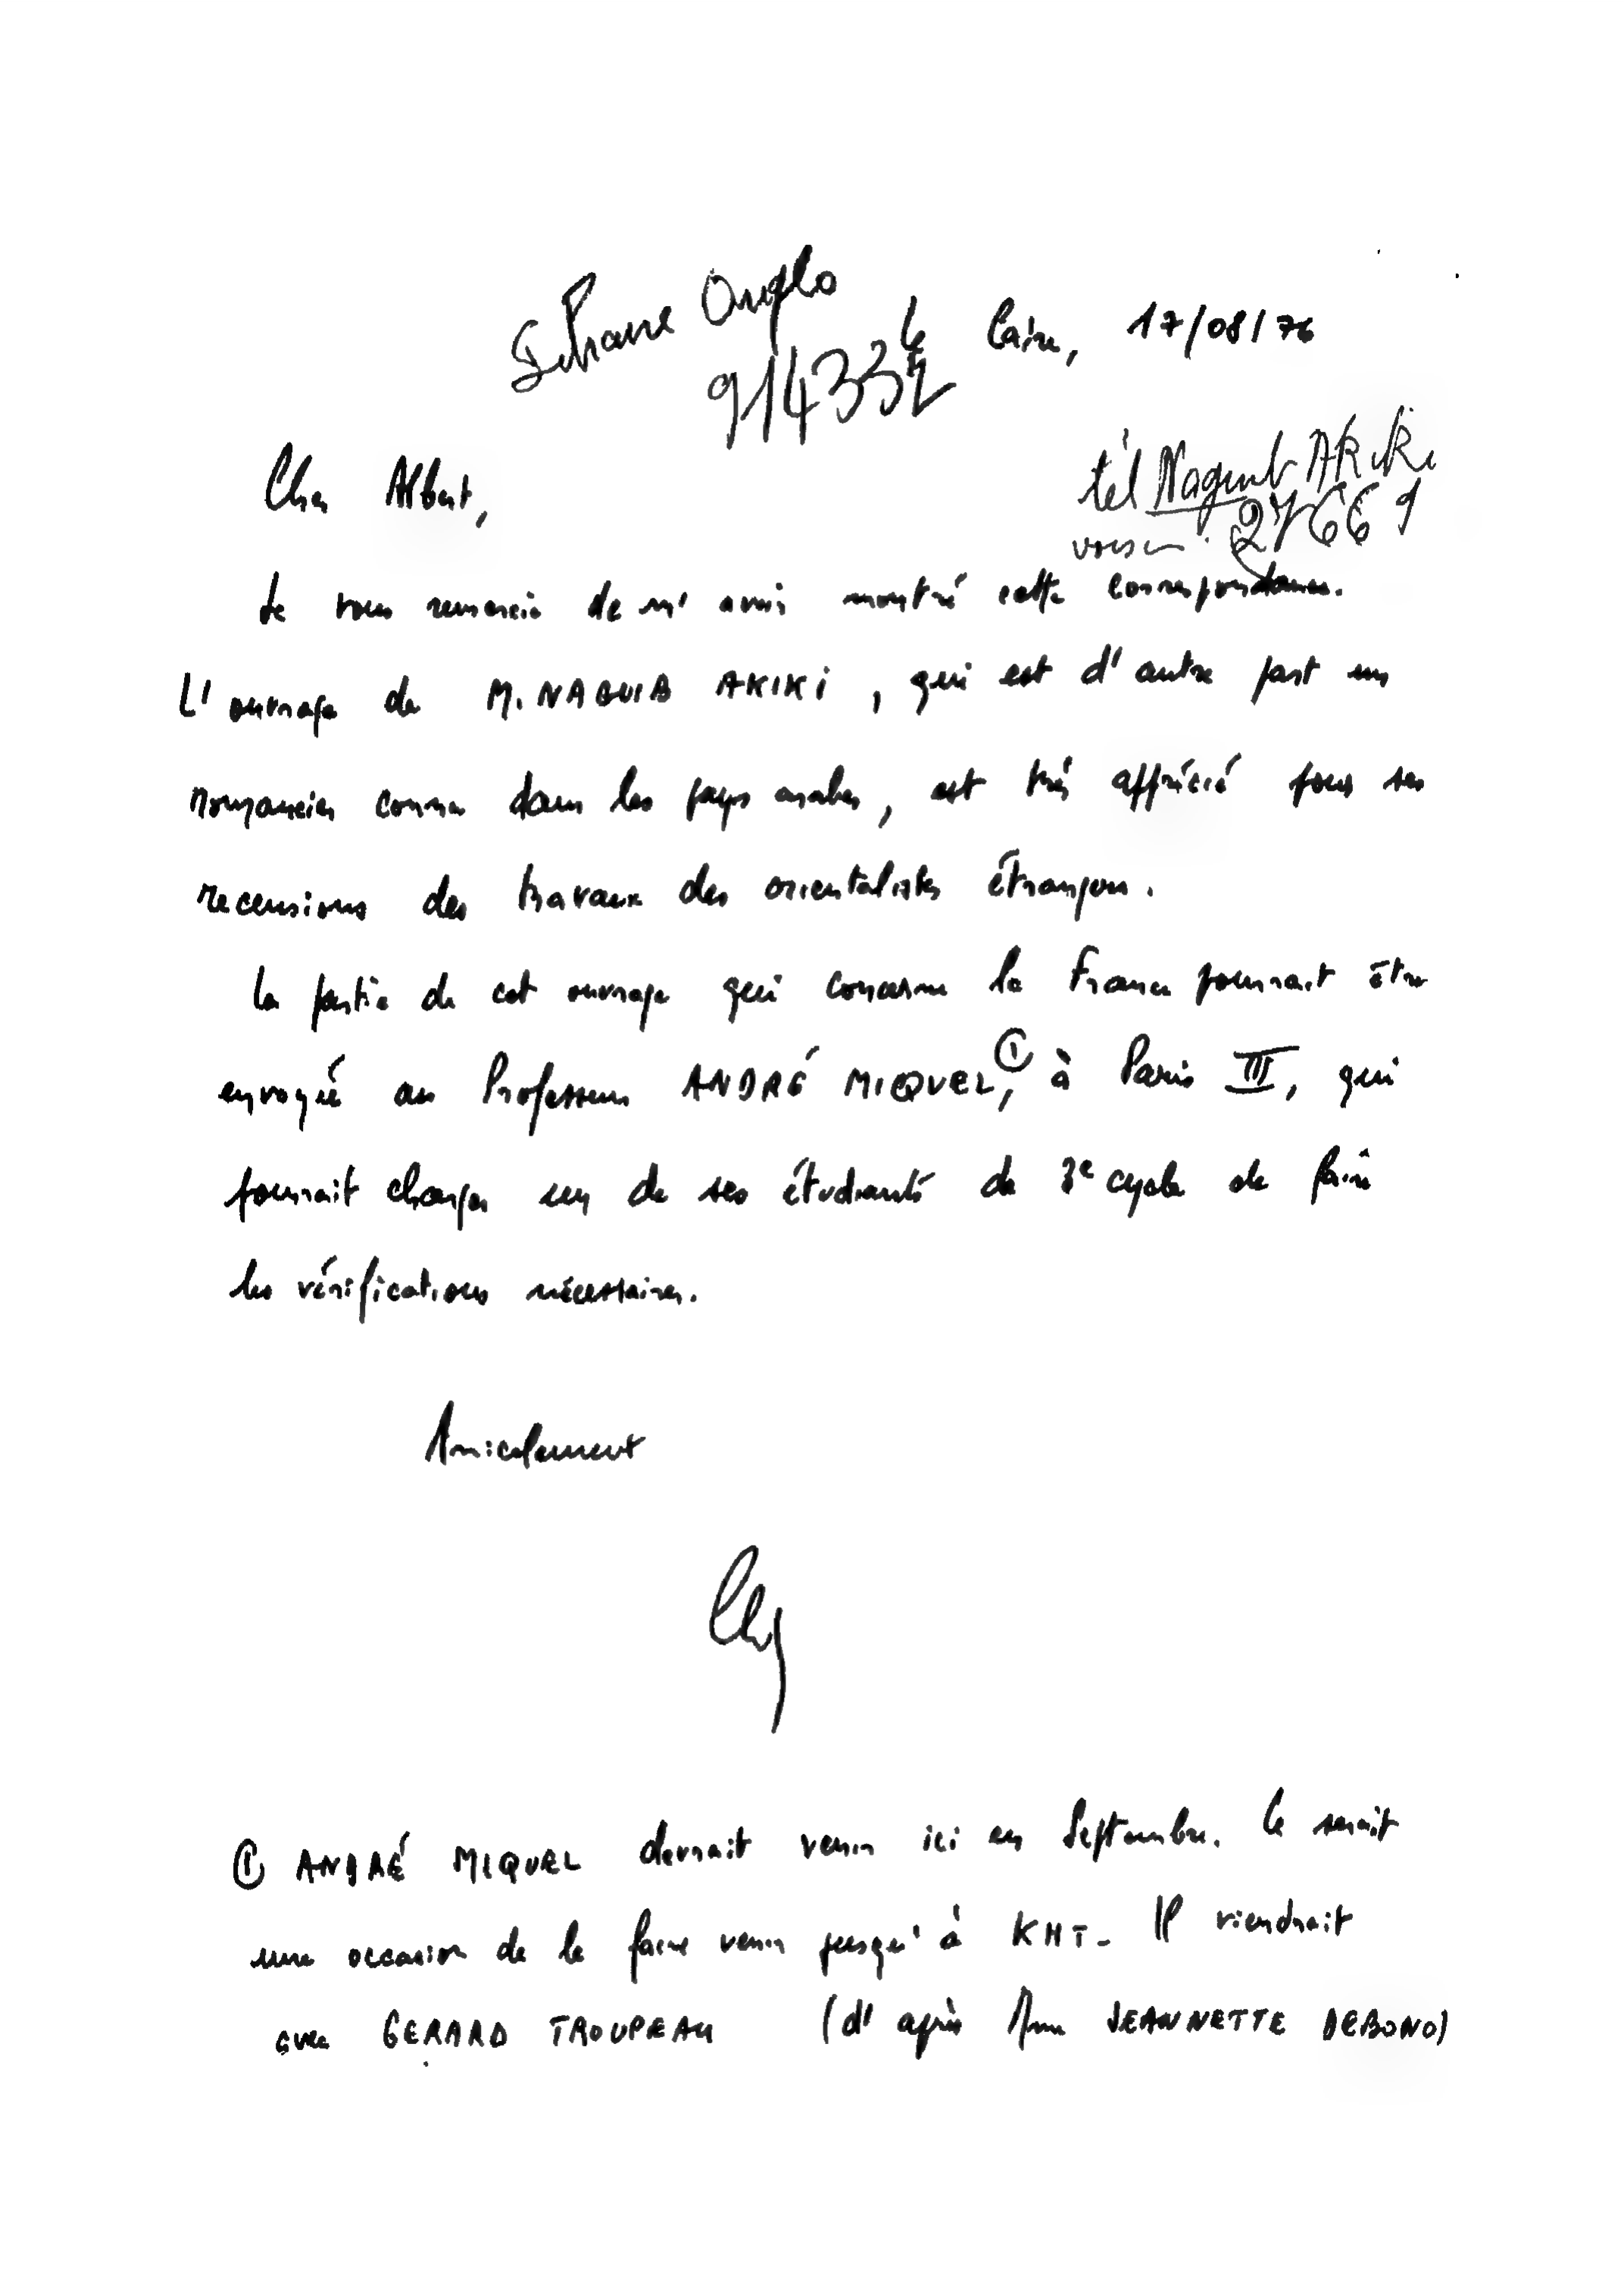 Anglo
914332
le Caire, 17/08/76
tél Naguib AKiKi
27669
Cher Albert,
Je vous remercie de m'avoir montré cette correspondance.
L'ouvrage de M. NAGUIB AKIKI, qui est d'autre part un
romancier connu dans les pays arabes, est très apprécié pour ses
recensions des travaux des orientalistes étrangers.
La partie de cet ouvrage qui concerne la France pourrait être
envoyée au Professeur ANDRÉ MIQUEL ①, à Paris III, qui
pourrait charger un de ses étudiants de 3e cycle de faire
les vérifications nécessaires.
Amicalement
① ANDRÉ MIQUEL devrait venir ici en Septembre. Ce serait
une occasion de le faire venir jusqu'à KHT - Il viendrait
avec GERARD TROUPEAU (d'après Mme JEANNETTE DEBONO)